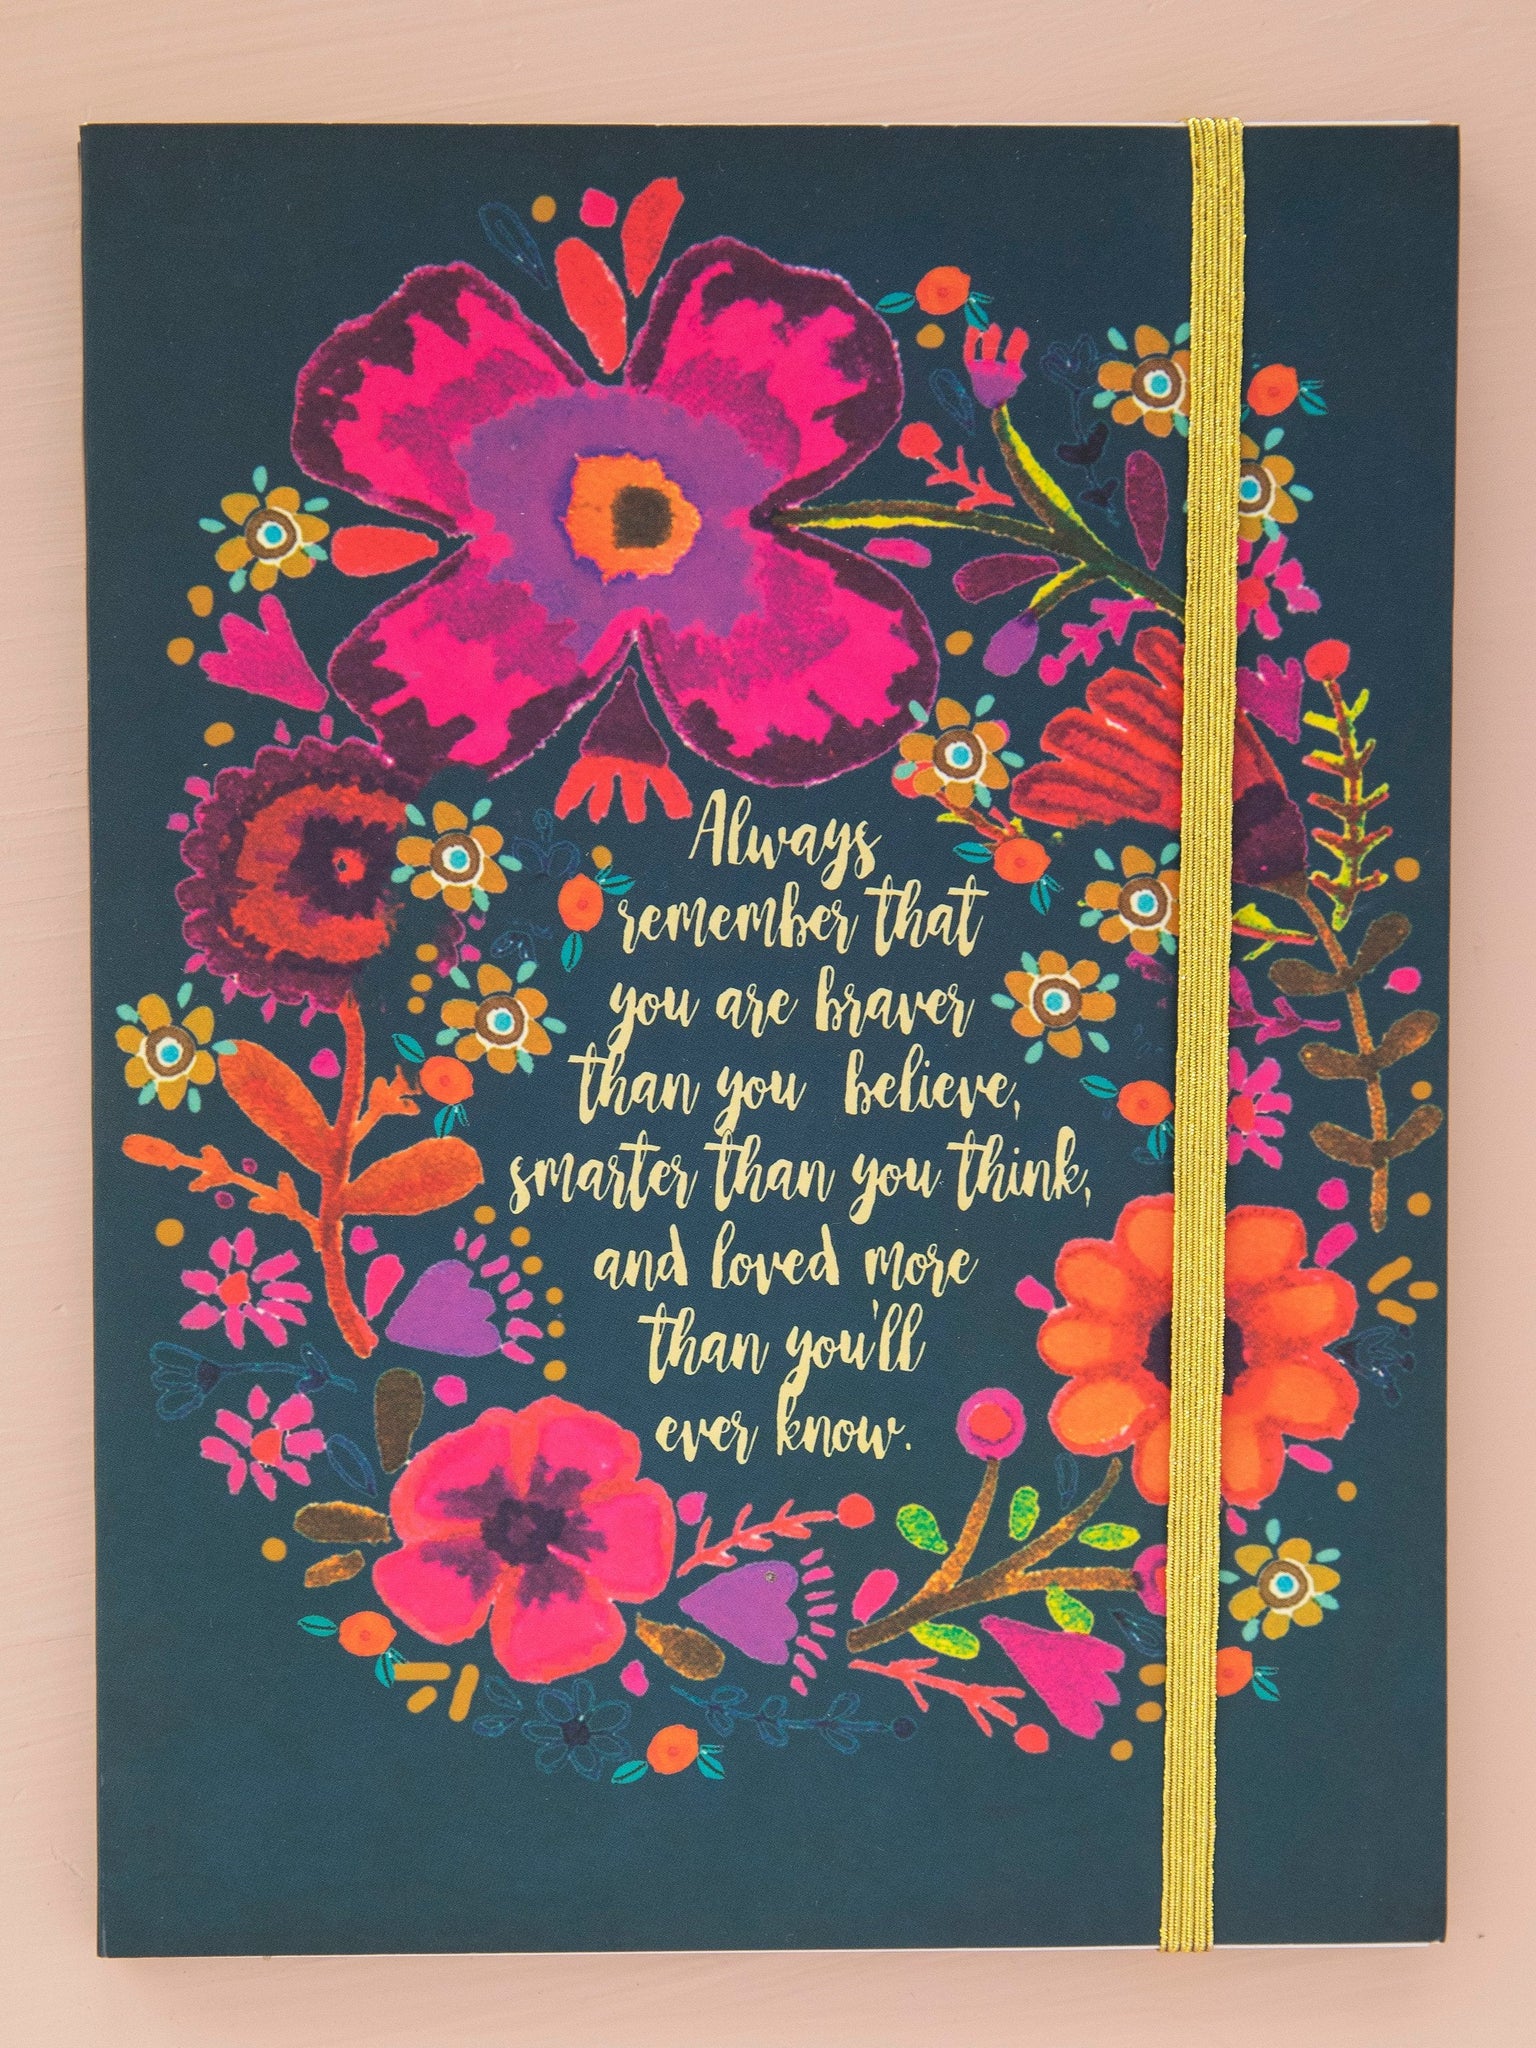 Always
remember that
you are braver
than you believe,
smarter than you think,
and loved more
than you'll
ever know.